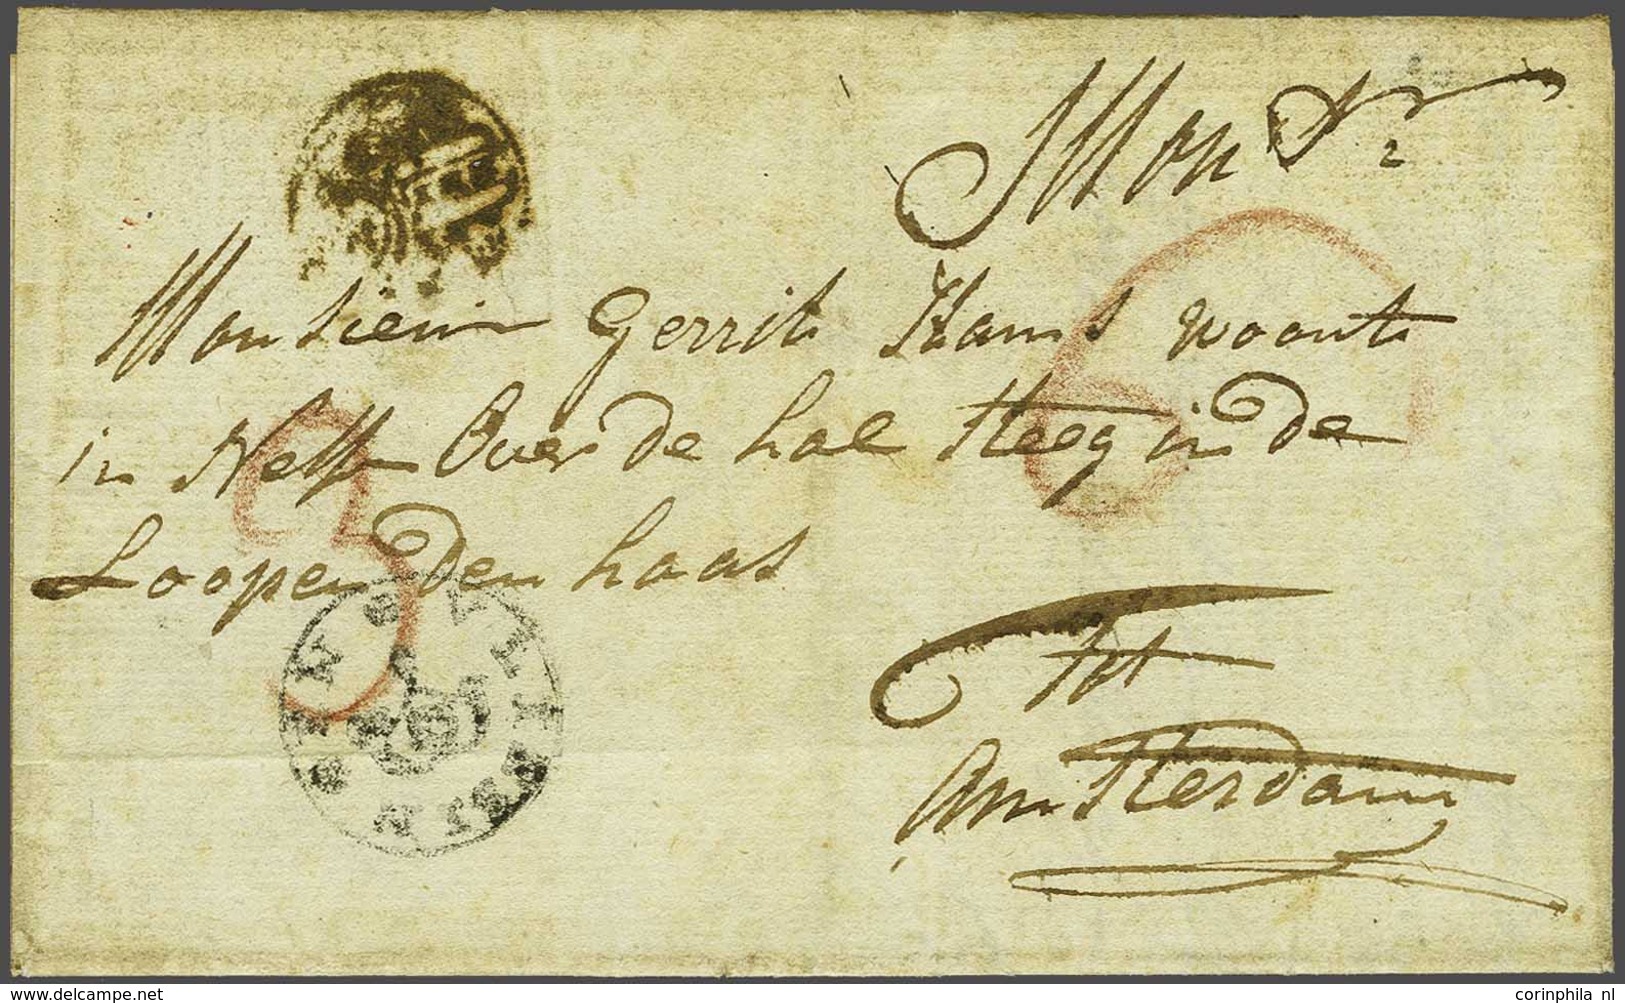 Mon Sr
Monsieur Gerrit Hams woont
in Ness Over de hal steeg in de
Loopen den haas
tot
Amsterdam
corinphila nl